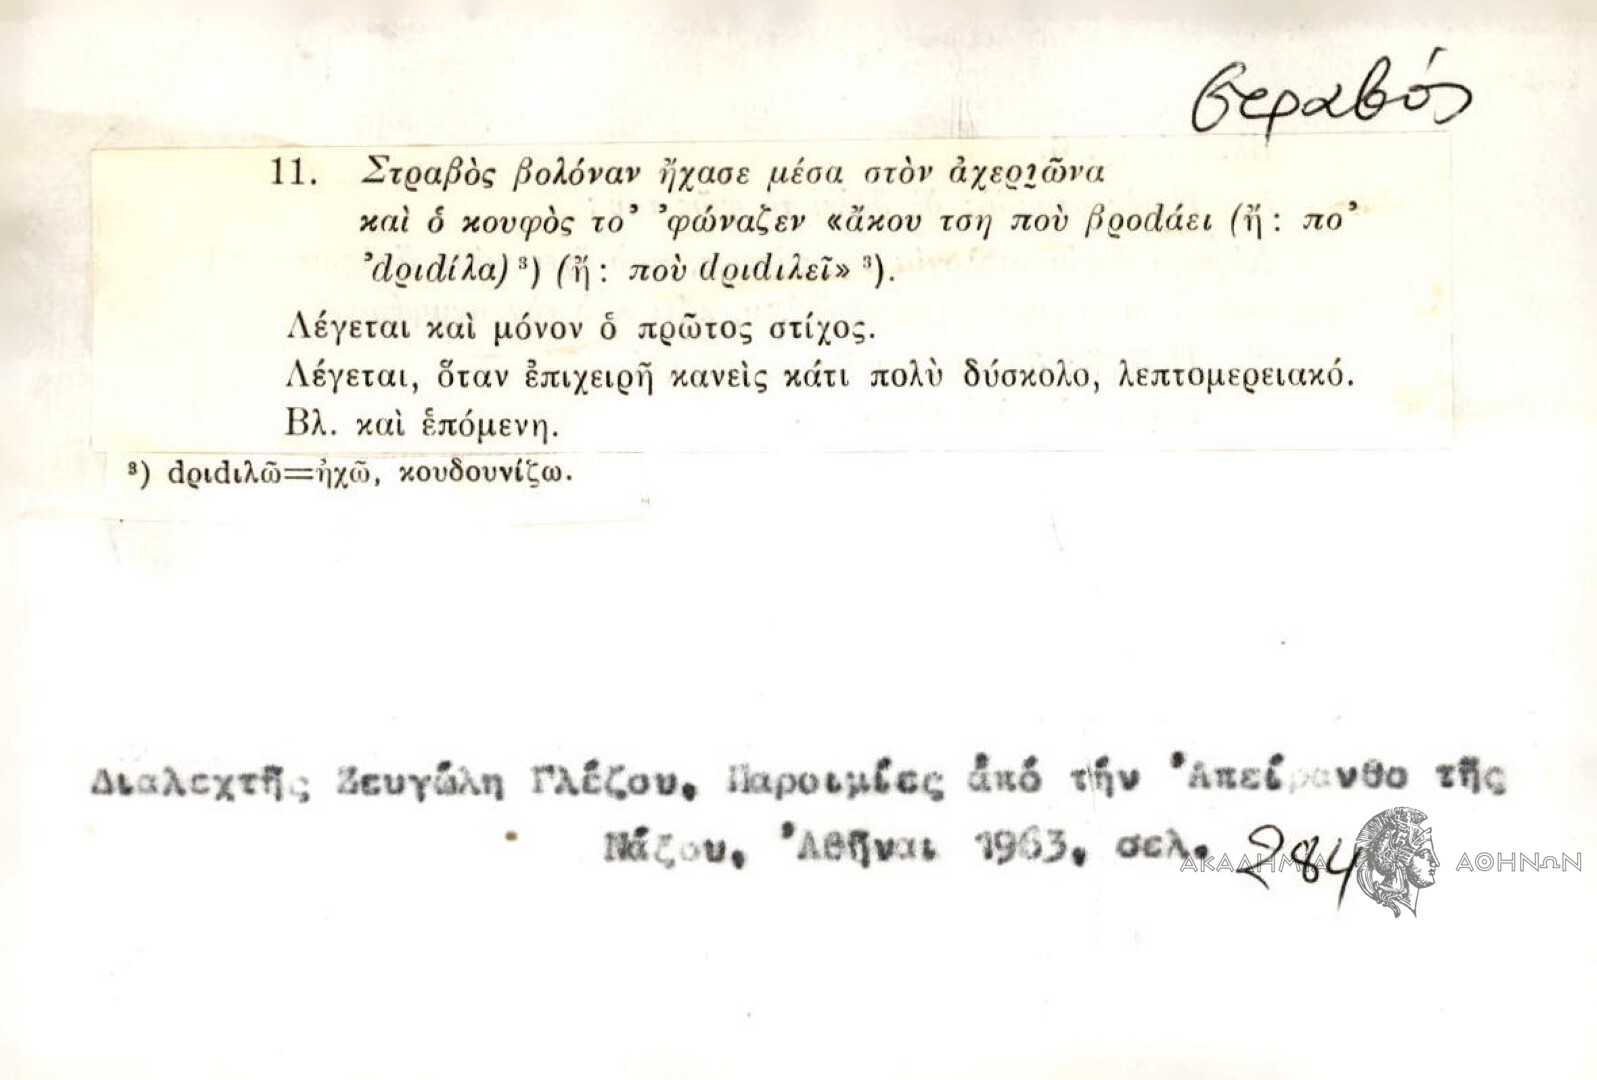 στραβός
11. Στραβὸς βολόναν ἤχασε μέσα στὸν ἀχερι̯ῶνα
καὶ ὁ κουφὸς το᾿ ᾿φώναζεν «ἄκου τση ποὺ βροdάει (ἤ: πο᾿
᾿dριdίλα) ³) (ἤ: ποὺ dριdιλεῖ» ³).
Λέγεται καὶ μόνον ὁ πρῶτος στίχος.
Λέγεται, ὅταν ἐπιχειρῇ κανεὶς κάτι πολὺ δύσκολο, λεπτομερειακό.
Βλ. καὶ ἑπόμενη.
³) dριdιλῶ=ἠχῶ, κουδουνίζω.
Διαλεχτῆς Ζευγώλη Γλέζου, Παροιμίες ἀπό τήν Ἀπείρανθο τῆς
Νάξου, Ἀθῆναι 1963, σελ. 284
ΑΚΑΔΗΜΙΑ ΑΘΗΝΩΝ